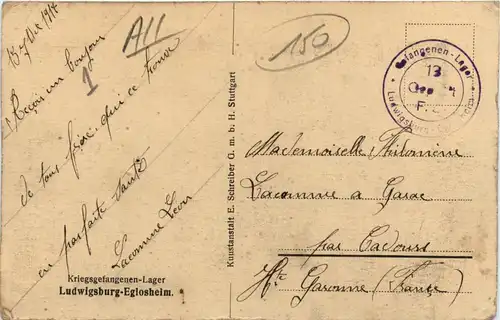 13 Dec 1917
AII
1
150
Reçois un bonjour
de ton frère, qui se trouve
en parfaite santé
Lacomme Léon
Kriegsgefangenen-Lager
Ludwigsburg-Eglosheim.
Kunstanstalt E. Schreiber G. m. b. H. Stuttgart
Gefangenen-Lager
13
Ludwigsburg-Eglosheim
Mademoiselle Philomène
Lacomme a Garac
par Cadours
Hte Garonne (France)